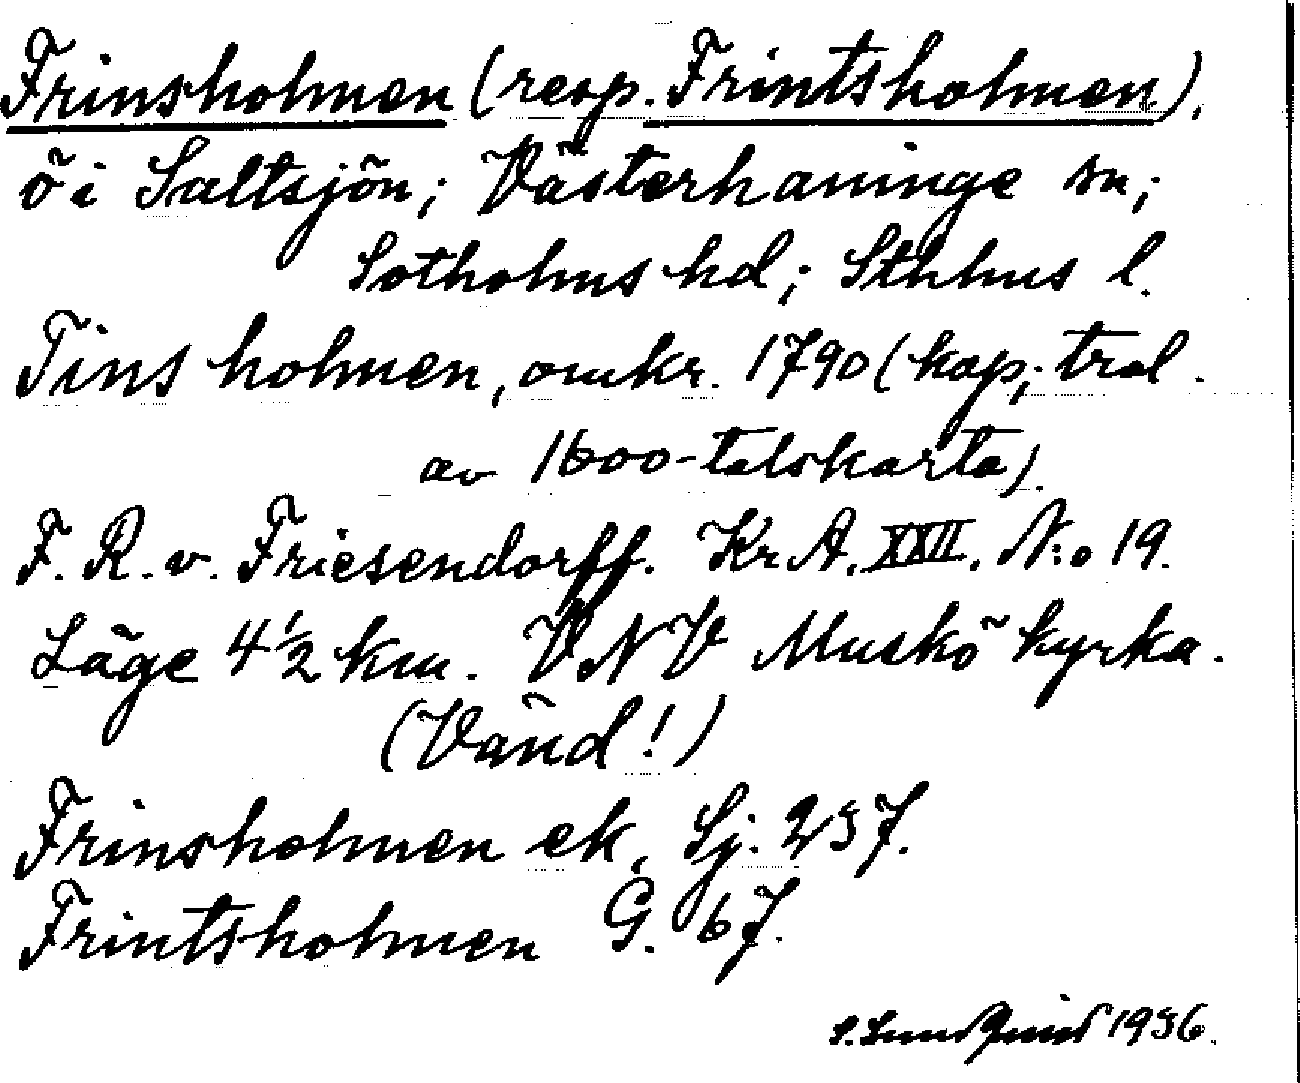 Frinsholmen (resp. Frintsholmen),
ö i Saltsjön; Västerhaninge sn;
Sotholms hd; Sthlms l.
Tins holmen, omkr. 1790 (kop; trol.
av 1600-talskarta).
F. R. v. Friesendorff. Kr A. XXII. N:o 19.
Läge 4 1/2 km. VNV Muskö kyrka.
(Vänd!)
Frinsholmen ek. Sj. 237.
Frintsholmen G. 67.
S. Lundquist 1936.